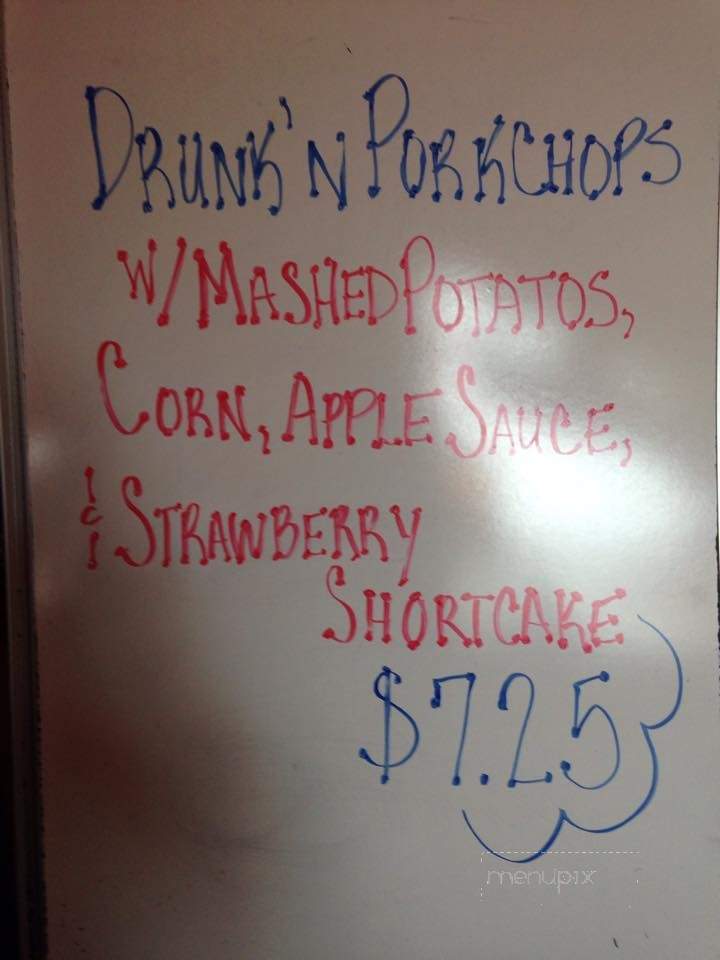 DRUNK'N PORKCHOPS
W/MASHED POTATOS,
CORN, APPLE SAUCE,
& STRAWBERRY
SHORTCAKE
$7.25
menupix